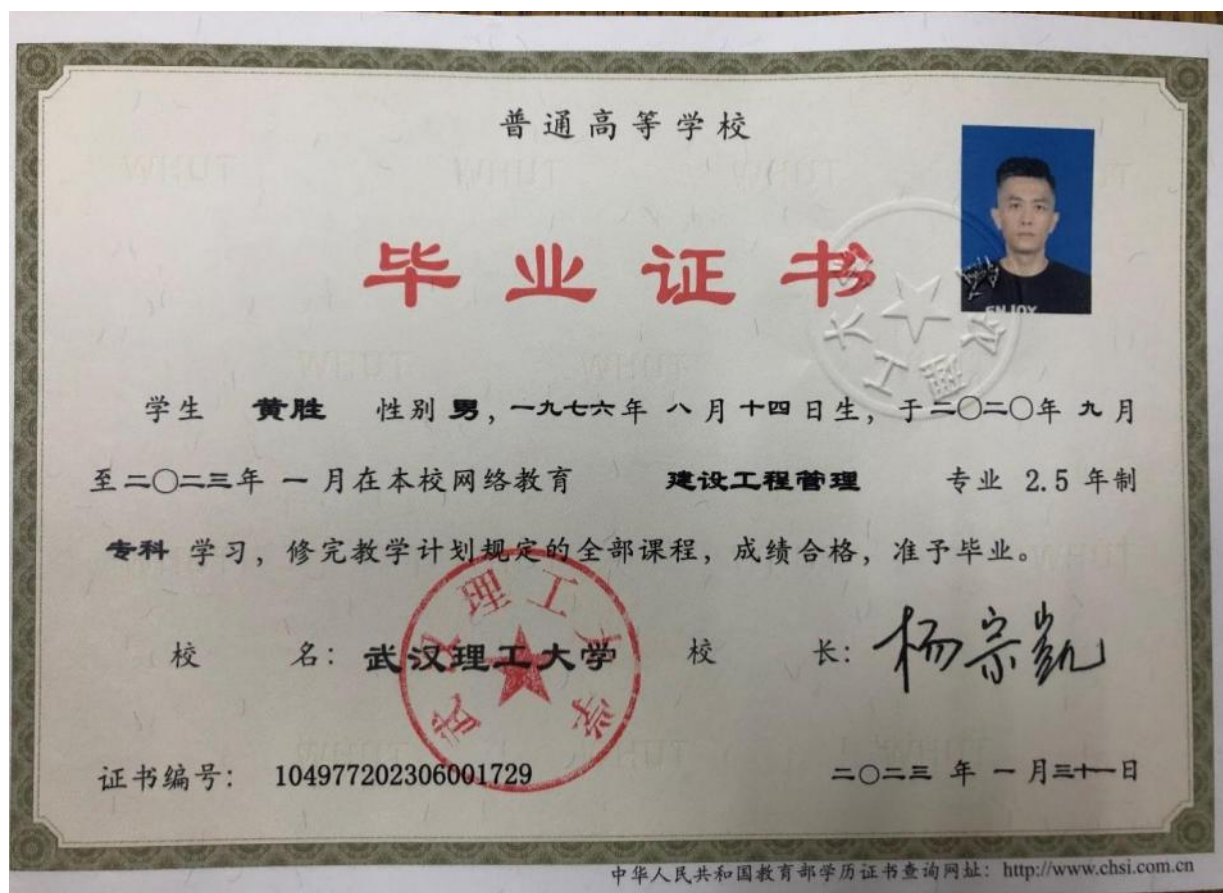 普通高等学校
毕业证书
学生 黄胜 性别 男，一九七六年 八 月 十四 日生，于二〇二〇年 九 月
至二〇二三年 一 月在本校网络教育 建设工程管理 专业 2.5 年制
专科 学习，修完教学计划规定的全部课程，成绩合格，准予毕业。
校 名：武汉理工大学 校 长：杨宗凯
武汉理工大学
证书编号： 104977202306001729 二〇二三 年 一 月三十一日
中华人民共和国教育部学历证书查询网址：http://www.chsi.com.cn
ENJOY